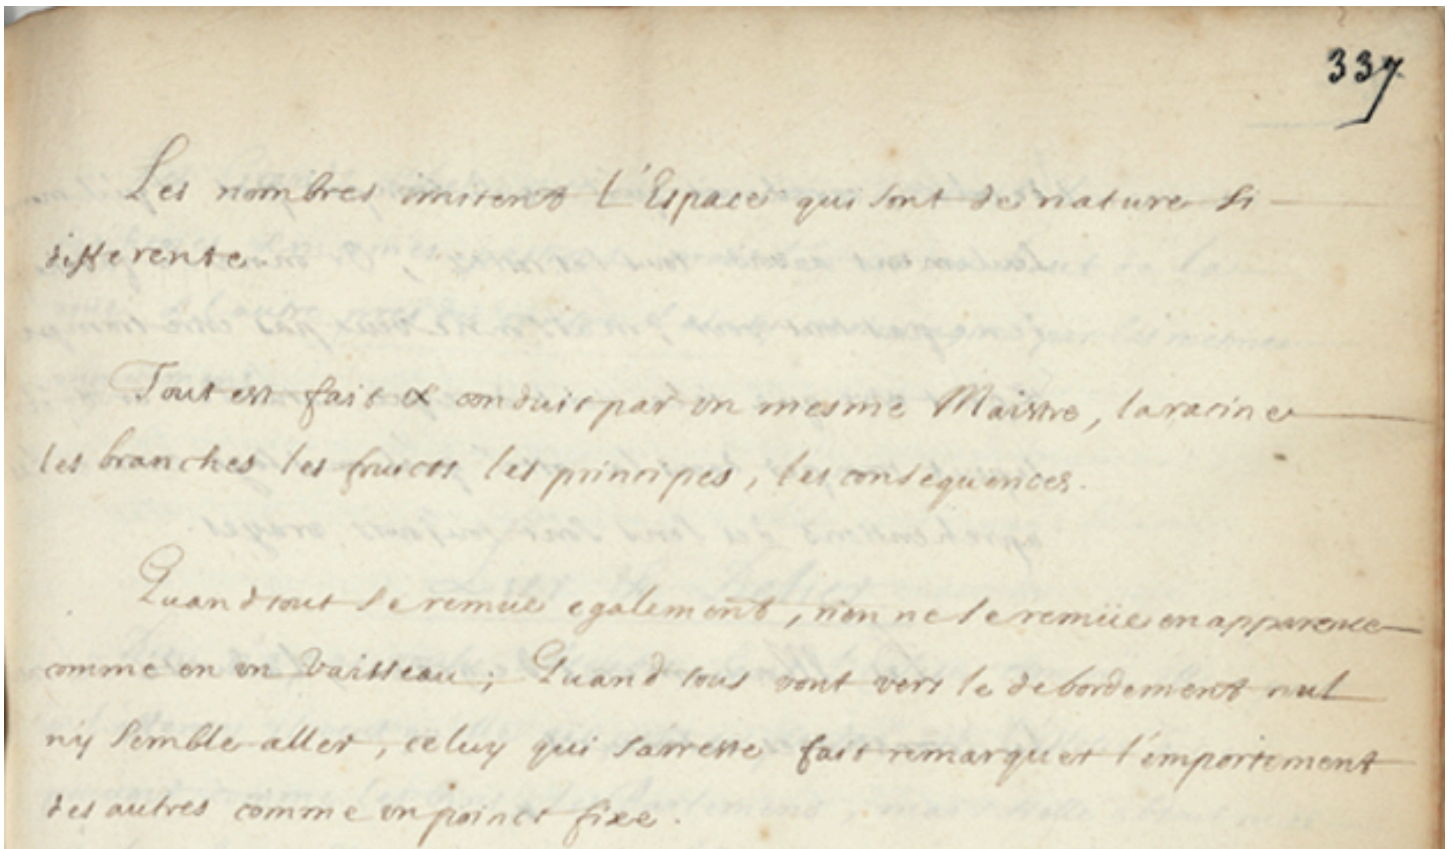 337
Les nombres imitent l'Espace qui sont de nature si
differente.
Tout est fait & conduit par un mesme Maistre, la racine
les branches les fruicts les principes, les consequences.
Quand tout se remüe egalement, rien ne se remüe en apparence
comme en un Vaisseau; Quand tous vont vers le debordement nul
n'y semble aller, celuy qui s'arreste fait remarquer l'emportement
des autres comme un poinct fixe.